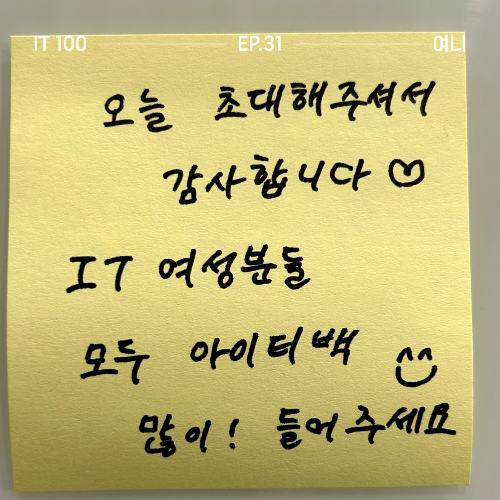 IT 100 EP.31 여니
오늘 초대해주셔서
감사합니다♡
IT 여성분들
모두 아이터백
많이! 들어주세요